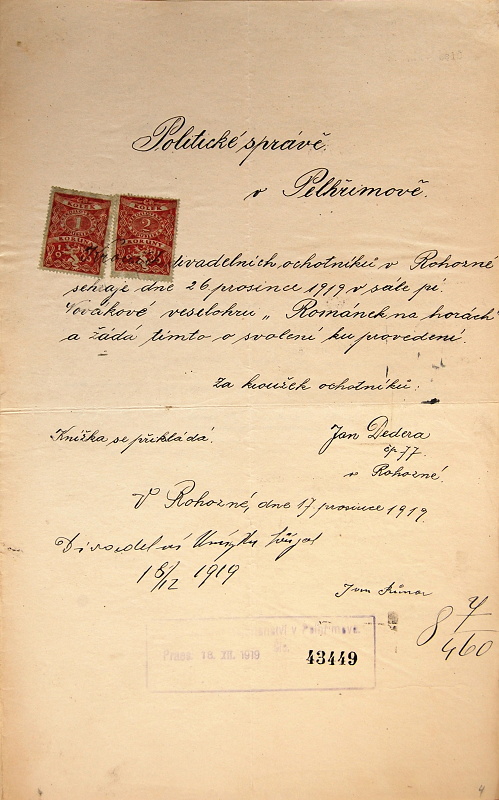 Politické správě
v Pelhřimově.
KOLEK
1
KORUNA
KOLEK
2
KORUNY
divadelních ochotníků v Rohozné
sehraje dne 26 prosince 1919 v sále pí.
Novákové veselohru „Románek na horách"
a žádá tímto o svolení ku provedení.
Za kroužek ochotníků:
Knížka se přikládá.
Jan Dedera
čp. 77.
v Rohozné.
V Rohozné, dne 17 prosince 1919.
Divadelní knížku
18/12 1919
v Pelhřimově.
Praes. 18. XII. 1919
43449
8 4/460